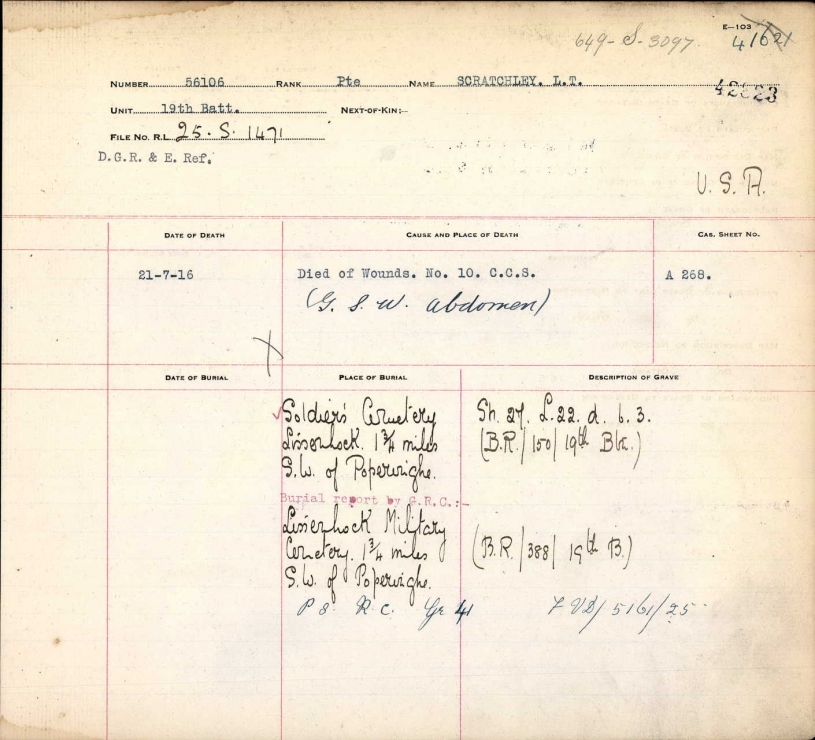 E—103
649-S-3097. 41621
NUMBER 56106 RANK Pte NAME SCRATCHLEY. L.T.
42823
UNIT 19th Batt. NEXT-OF-KIN:—
FILE NO. R.L. 25. S. 1471
D.G.R. & E. Ref.
U.S.A.
DATE OF DEATH CAUSE AND PLACE OF DEATH CAS. SHEET NO.
21-7-16 Died of Wounds. No. 10. C.C.S. A 268.
(G. S. W. abdomen)
DATE OF BURIAL PLACE OF BURIAL DESCRIPTION OF GRAVE
Soldiers' Cemetery Sh. 27. L.22. d. 6. 3.
Lissenhock. 1¾ miles (B.R./150/19th Bn.)
S.W. of Poperinghe.
Burial report by G.R.C.:—
Lissenhock Military
Cemetery. 1¾ miles (B.R./388/19th B.)
S.W. of Poperinghe.
P 8 R C. Gr 41 7 VD/5161/25